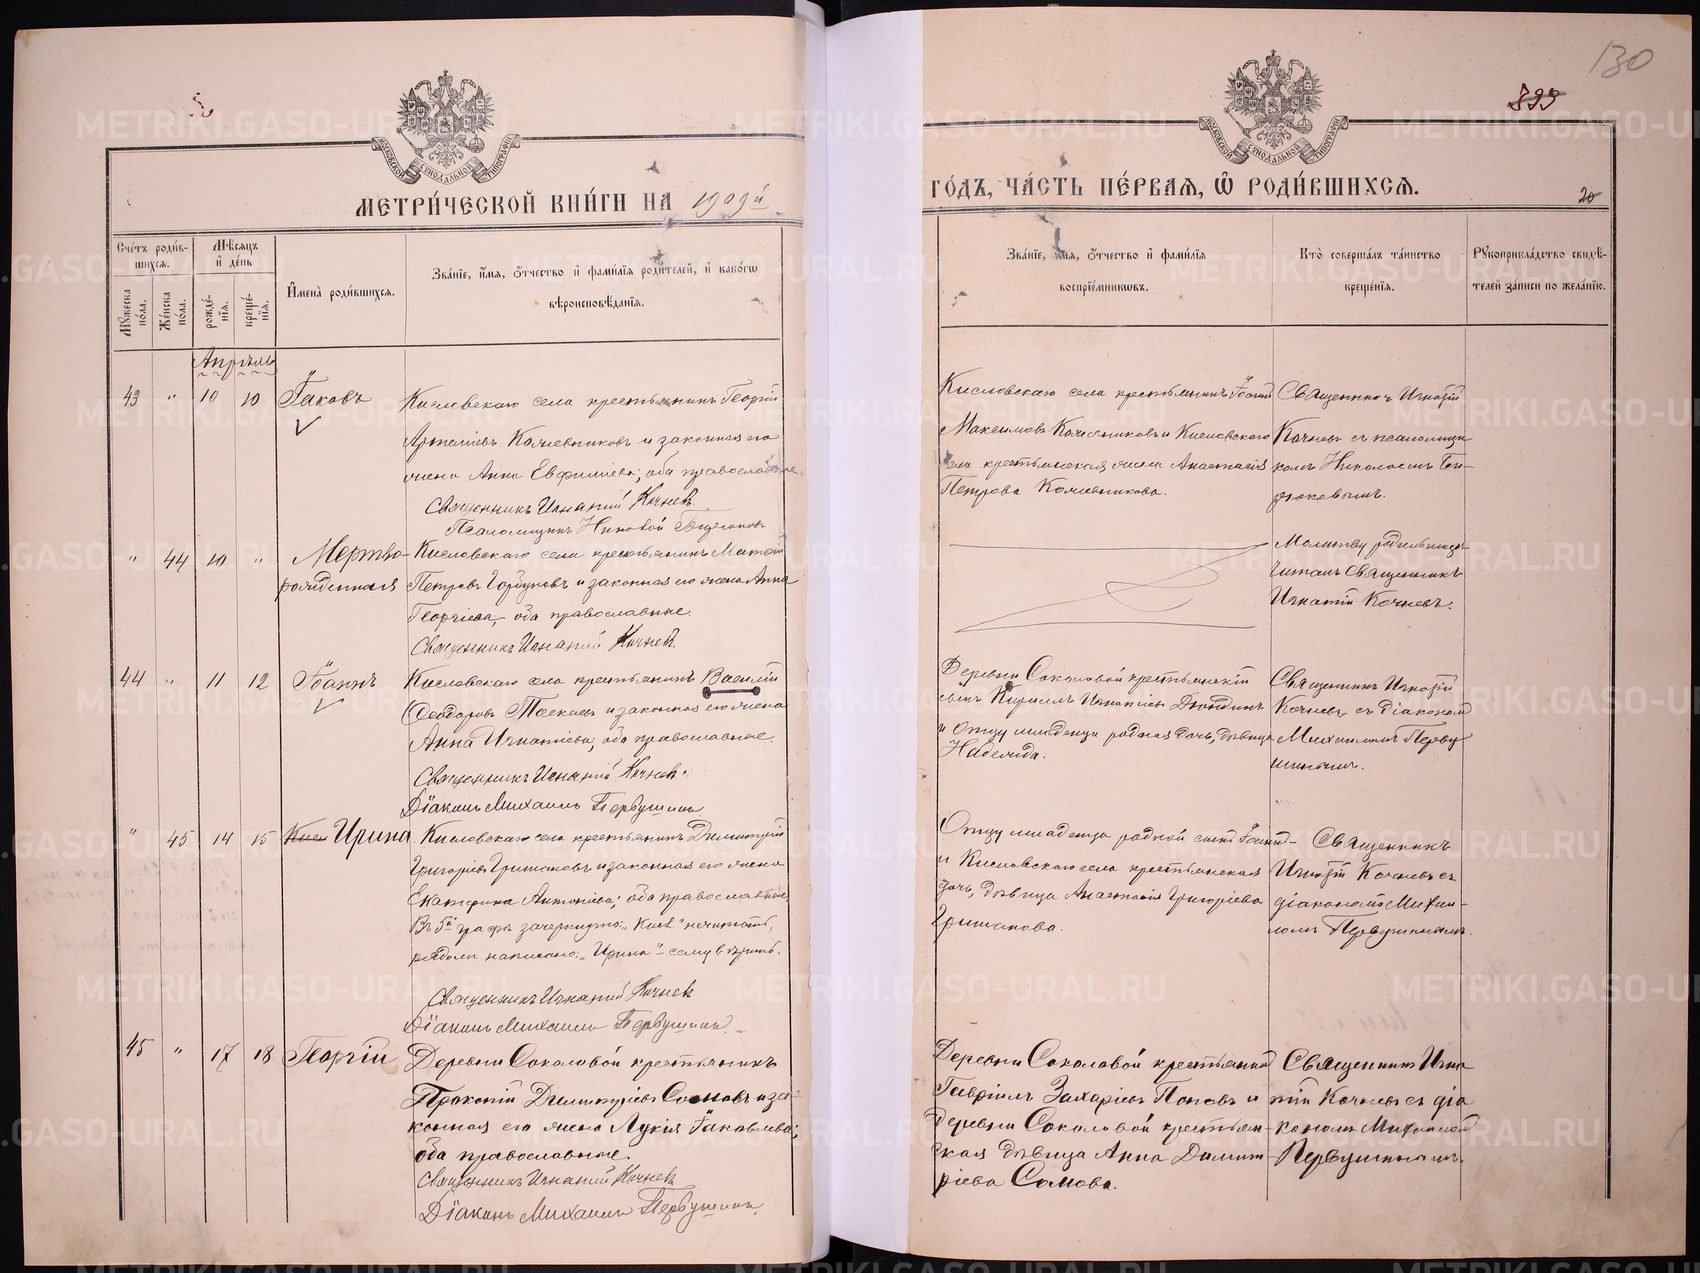 130
399
МЕТРИ́ЧЕСКОЙ КНИ́ГИ НА 1909й
ГО́ДЪ, ЧА́СТЬ ПЕ́РВАЯ, Ѡ РОДИ́ВШИХСЯ.
20
Сче́тъ роди́в-
шихся.
Мѣ́сяцъ
и҆ де́нь
Мꙋ́жеска по́ла.
Же́нска по́ла.
рожде́-
нїѧ.
креще́-
нїѧ.
И҆мена̀ роди́вшихся.
Зва́нїе, и҆́мя, ѻ҆́тчество и҆ фами́лїя роди́телей, и҆ како́гѡ
вѣроисповѣ́данїя.
Зва́нїе, и҆́мя, ѻ҆́тчество и҆ фами́лїя
воспрїе́мниковъ.
Кто̀ соверша́лъ та́инство
креще́нїя.
Рꙋкоприкла́дство свидѣ́-
телей за́писи по жела́нїю.
Апрѣль
43 " 10 10 Іаковъ
Кисловскаго села крестьянинъ Георгій
Артеміевъ Кожевниковъ и законная его
жена Анна Евфиміева; оба православные
Священникъ Игнатій Кочневъ
Псаломщикъ Николай
Кисловскаго села крестьянинъ Іоаннъ
Максимовъ Кожевниковъ и Кисловскаго
села крестьянская жена Анастасія
Петрова Кожевникова.
Священникъ Игнатій
Кочневъ съ псаломщи-
комъ Николаемъ
" 44 10 " Мертво-
рожденная
Кисловскаго села крестьянинъ Матѳій
Петровъ Горбуновъ и законная его жена Анна
Георгіева, оба православные.
Священникъ Игнатій Кочневъ.
Молитву родильницѣ
читалъ Священникъ
Игнатій Кочневъ.
44 " 11 12 Іоаннъ
Кисловскаго села крестьянинъ Василій
Ѳеодоровъ Таскаевъ и законная его жена
Анна Игнатіева, оба православные.
Священникъ Игнатій Кочневъ.
Діаконъ Михаилъ Первушинъ
Деревни Соколовой крестьянскій
сынъ Кириллъ Игнатіевъ Дюндинъ
и отцу младенца родная дочь, дѣвица
Надежда.
Священникъ Игнатій
Кочневъ съ діакономъ
Михаиломъ Перву
шинымъ.
" 45 14 15 Кисл Ирина
Кисловскаго села крестьянинъ Димитрій
Григоріевъ Гришановъ и законная его жена
Екатерина Антоніева; оба православные.
Въ 5й графѣ зачеркнуто: „Кисл" нечитать,
рядомъ написано: „Ирина" – сему вѣрить.
Священникъ Игнатій Кочневъ
Діаконъ Михаилъ Первушинъ.
Отцу младенца родной сынъ Іоаннъ
и Кисловскаго села крестьянская
дочь, дѣвица Анастасія Григоріева
Гришанова.
Священникъ
Игнатій Кочневъ съ
діакономъ Михаи-
ломъ Первушинымъ.
45 " 17 18 Георгій
Деревни Соколовой крестьянинъ
Прокопій Димитріевъ Сомовъ и за-
конная его жена Лукія Іаковлева;
оба православные.
Священникъ Игнатій Кочневъ
Діаконъ Михаилъ Первушинъ.
Деревни Соколовой крестьянинъ
Гавріилъ Захаріевъ Поповъ и
деревни Соколовой крестьян-
ская дѣвица Анна Димит-
ріева Сомова.
Священникъ Игна
тій Кочневъ съ діа
кономъ Михаиломъ
Первушинымъ.
METRIKI.GASO-URAL.RU